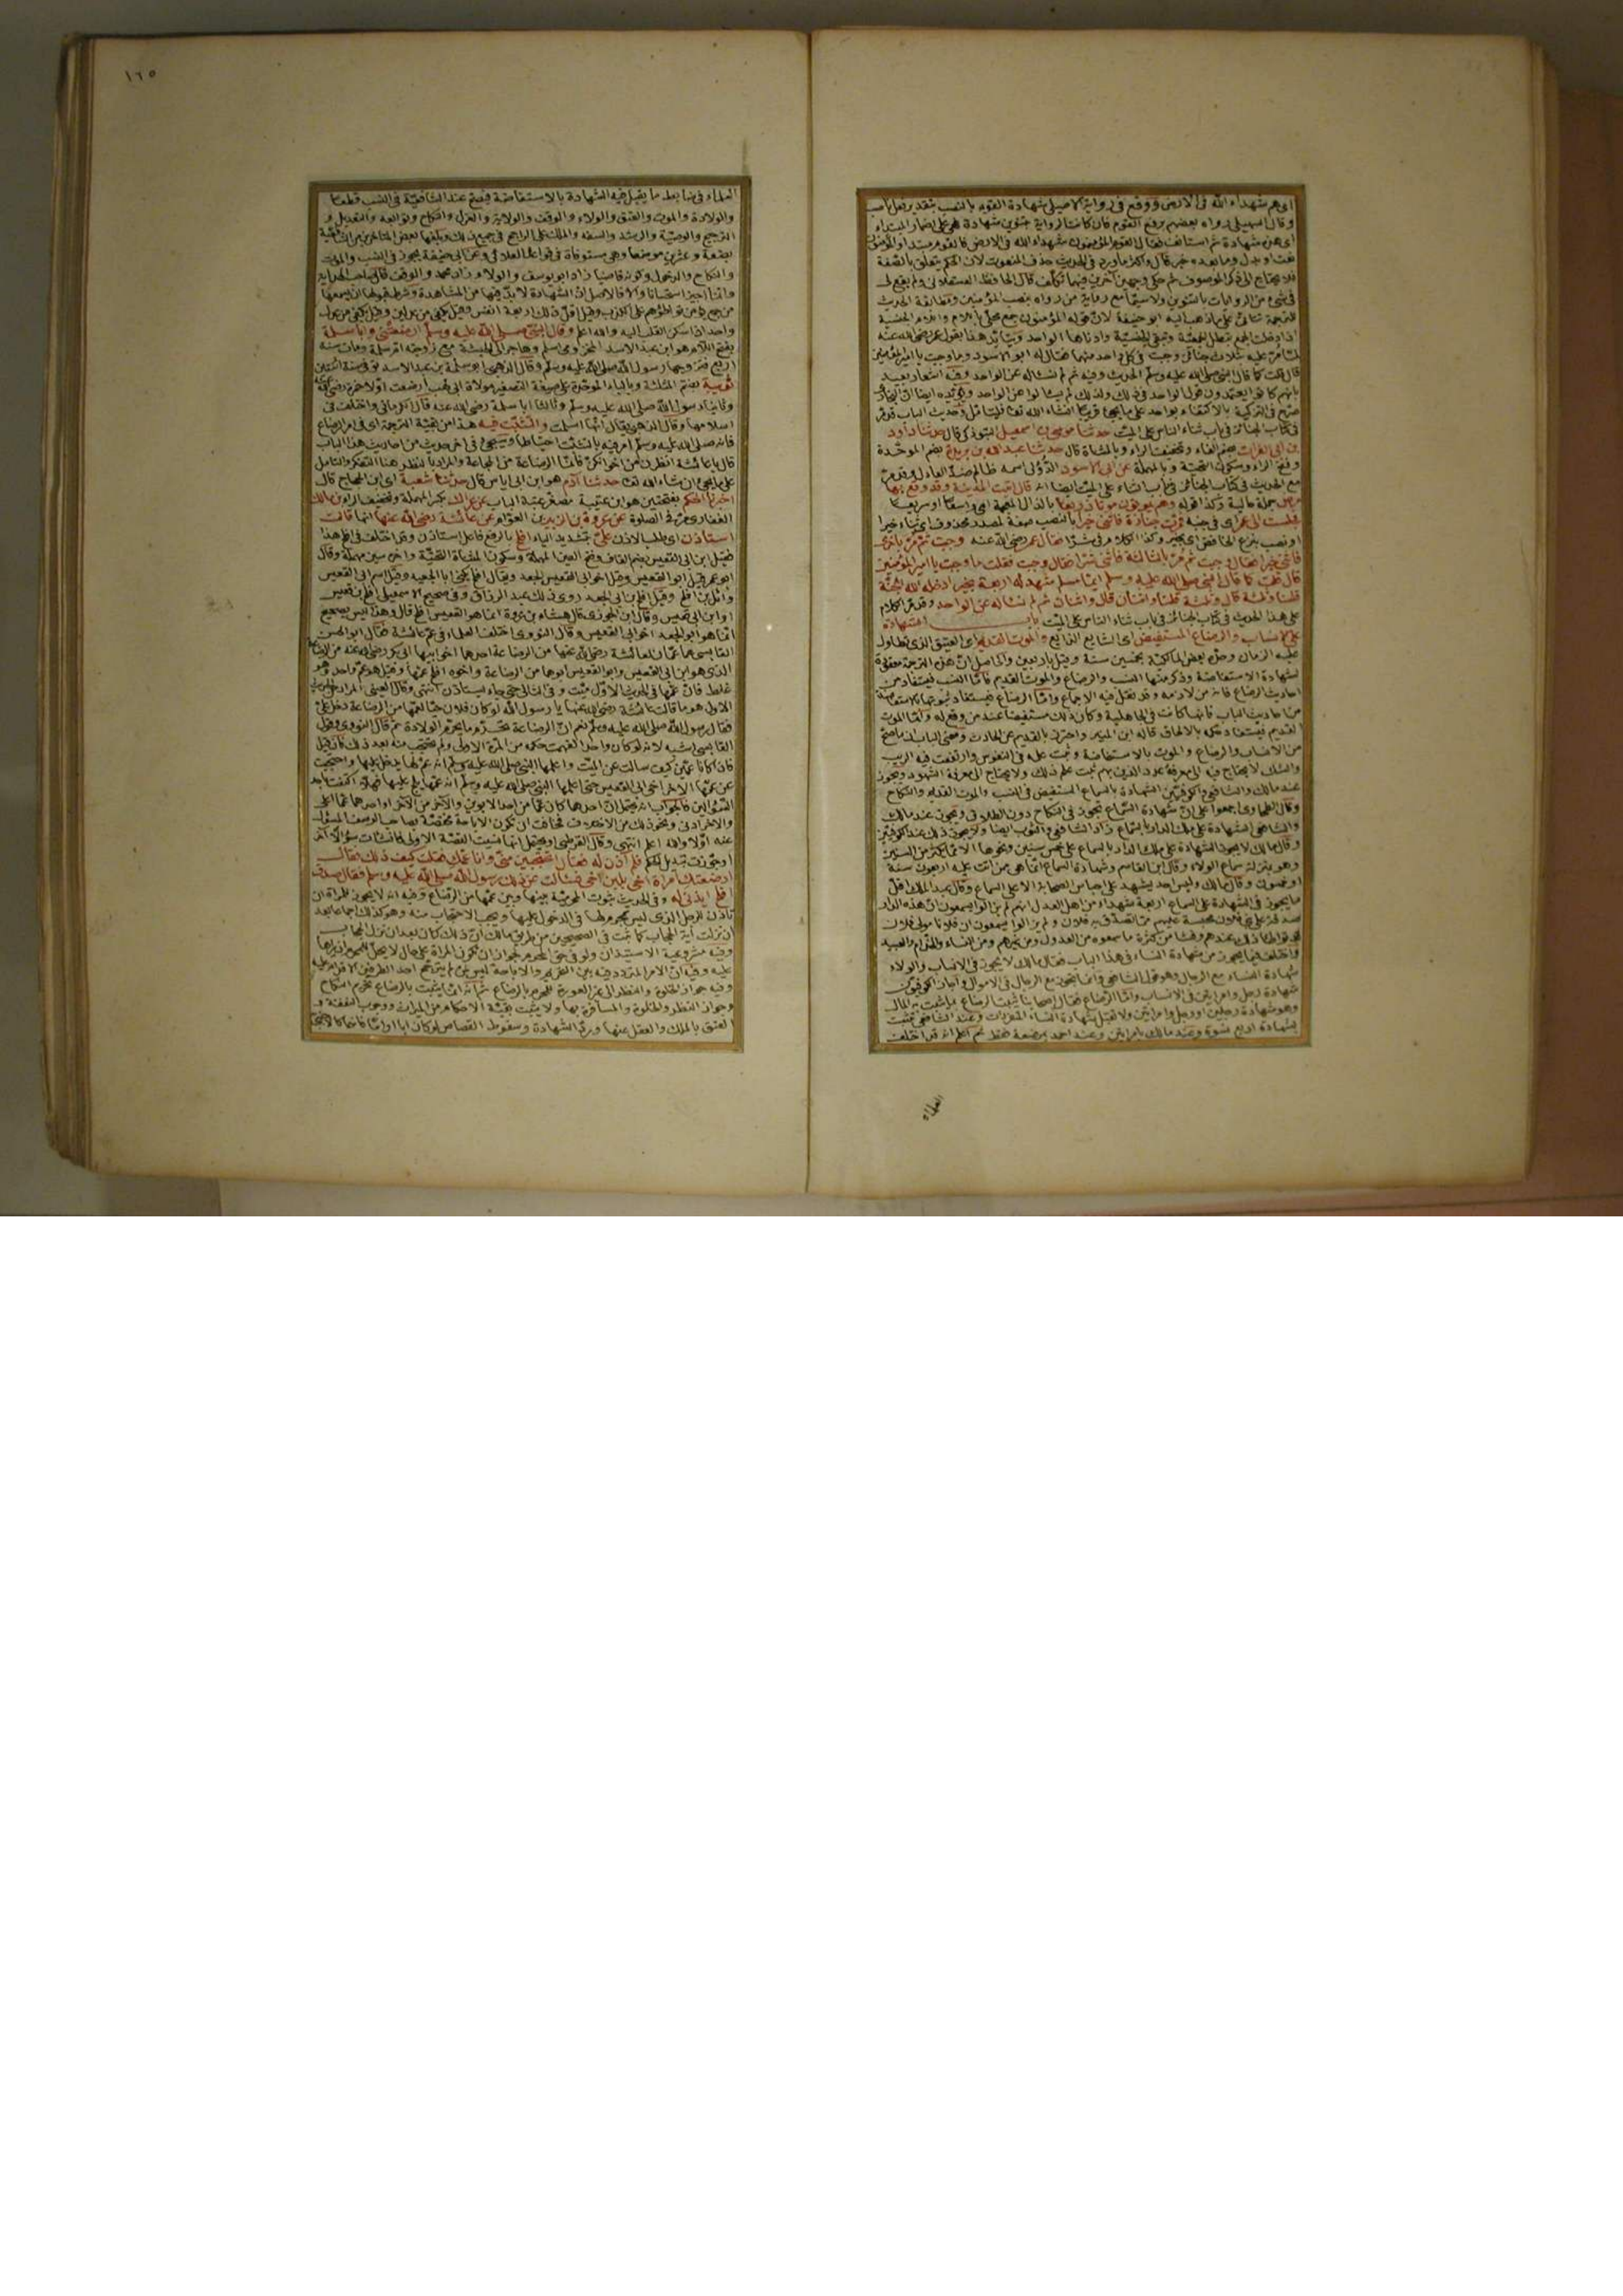 اى هم شهداء الله فى الارض ووقع فى رواية الاصيلى شهادة القوم بالنصب بتقدير فعل ناصب
وقال السهيلى رواه بعضهم برفع القوم فان كانت الرواية بتنوين شهادة فهى على اضمار المبتداء
اى هى شهادة ثم استانف فقال القوم المؤمنون شهداء الله فى الارض فالقوم مبتدا والمؤمنون
نعت او بدل وما بعده خبر قال واكثر ما ورد فى الحديث حذف المنعوت لان الحكم يتعلق بالصفة
فلا يحتاج الى ذكر الموصوف ثم حكى وجهين آخرين فيهما تكلف قال الحافظ العسقلانى ولم يقع لى
فى شىء من الروايات بالتنوين ولا سيما مع رواية من رواه بنصب المؤمنين ومطابقة الحديث
للترجمة تتاتى على ما ذهب اليه ابو حنيفة لان قوله المؤمنون جمع محلى باللام واللام الجنسية
اذا دخلت الجمع تبطل الجمعية وتبقى الجنسية وادناها الواحد ويتايد هذا بقول عمر رضى الله عنه
لما مر عليه ثلاث جنائز وجبت فى كل واحد منها فقال له ابو الاسود وما وجبت يا امير المؤمنين
قال قلت كما قال النبى صلى الله عليه وسلم الحديث وفيه ثم لم نساله عن الواحد وفيه اشعار بعيد
بانهم كانوا يعتمدون قول الواحد فى ذلك ولذلك لم يسالوا عن الواحد ويؤيده ايضا ان البخارى
صرح فى التزكية بالاكتفاء بواحد على ما يجئ قريبا انشاء الله تعالى فليتامل وحديث الباب قد مر
فى كتاب الجنائز فى باب ثناء الناس على الميت حدثنا موسى بن اسمعيل التبوذكى قال حدثنا داود
بن ابى الفرات بضم الفاء وتخفيف الراء وبالمثناة قال حدثنا عبد الله بن بريدة بضم الموحدة
وفتح الراء وسكون التحتية وبالمهملة عن ابى الاسود الدؤلى اسمه ظالم ضد العادل وقد مر
مع الحديث فى كتاب الجنائز فى باب الثناء على الميت ايضا انه قال اتيت المدينة وقد وقع بها
مرض جملة حالية وكذا قوله وهم يموتون موتا ذريعا بالذال المعجمة اى واسعا او سريعا
فجلست الى عمر اى فى جنبه فمرت جنازة فاثنى خيرا بالنصب صفة لمصدر محذوف اى ثناء خيرا
او نصب بنزع الخافض اى بخير وكذا الكلام فى شرا فقال عمر رضى الله عنه وجبت ثم مر باخرى
فاثنى خيرا فقال وجبت ثم مر بالثالثة فاثنى شرا فقال وجبت فقلت ما وجبت يا امير المؤمنين
قال قلت كما قال النبى صلى الله عليه وسلم ايما مسلم شهد له اربعة بخير ادخله الله الجنة
قلنا وثلثة قال وثلثة قلنا واثنان قال واثنان ثم لم نساله عن الواحد وقد مر الكلام
على هذا الحديث فى كتاب الجنائز فى باب ثناء الناس على الميت باب الشهادة
على الانساب والرضاع المستفيض اى الشايع الذائع والموت القديم اى العتيق الذى تطاول
عليه الزمان وحده بعض المالكية بخمسين سنة وقيل باربعين والحاصل ان هذه الترجمة معقودة
لشهادة الاستفاضة وذكر منها النسب والرضاع والموت القديم فاما النسب فيستفاد من
احاديث الرضاع فانه من لازمه وقد نقل فيه الاجماع واما الرضاع فيستفاد ثبوته بالاستفاضة
من احاديث الباب فانها كانت فى الجاهلية وكان ذلك مستفيضا عند من وقع له واما الموت
القديم فيستفاد حكمه بالالحاق قاله ابن المنير واحترز بالقديم عن الحادث ومعنى الباب ان ما صح
من الانساب والرضاع والموت بالاستفاضة وثبت علمه فى النفوس وارتفعت فيه الريب
والشك لا يحتاج فيه الى معرفة عدد الذين بهم ثبت علم ذلك ولا يحتاج الى معرفة الشهود ويجوز
عند مالك والشافعى والكوفيين الشهادة بالسماع المستفيض فى النسب والموت القديم والنكاح
وقال الطحاوى اجمعوا على ان شهادة السماع تجوز فى النكاح دون الطلاق ويجوز عند مالك
والشافعى الشهادة على ملك الدار بالسماع زاد الشافعى والثوب ايضا ولا يجوز ذلك عند الكوفيين
وقال مالك لا يجوز الشهادة على ملك الدار بالسماع على خمس سنين ونحوها الا فيما يكثر من السنين
وهو بمنزلة سماع الولاء وقال ابن القاسم وشهادة السماع انما هى ممن اتت عليه اربعون سنة
او خمسون وقال مالك وليس احد يشهد على احباس الصحابة الا على السماع وقال عبد الملك اقل
ما يجوز فى الشهادة على السماع اربعة شهداء من اهل العدل انهم لم يزالوا يسمعون ان هذه الدار
صدقة على بنى فلان محبسة عليهم مما تصدق به فلان ولم يزالوا يسمعون ان فلانا مولى فلان
قد تواطا ذلك عندهم وفشا من كثرة ما سمعوه من العدول ومن غيرهم ومن النساء والخدم والعبيد
واختلف فيما يجوز من شهادة النساء فى هذا الباب فقال مالك لا يجوز فى الانساب والولاء
شهادة النساء مع الرجال وهو قول الشافعى وانما تجوز مع الرجال فى الاموال واجاز الكوفيون
شهادة رجل وامراتين فى الانساب واما الرضاع فقال اصحابنا يثبت الرضاع بما يثبت به المال
وهو شهادة رجلين او رجل وامراتين ولا تقبل شهادة النساء المنفردات وعند الشافعى يثبت
بشهادة اربع نسوة وعند مالك بامراتين وعند احمد بمرضعة فقط ثم اعلم انه قد اختلف
العلماء
١٦٥
العلماء فى ضابط ما يقبل فيه الشهادة بالاستفاضة فيصح عند الشافعية فى النسب قطعا
والولادة والموت والعتق والولاء والوقف والولاية والعزل والنكاح وتوابعه والتعديل و
التجريح والوصية والرشد والسفه والملك على الراجح فى جميع ذلك وبلغها بعض المتاخرين من الشافعية
بضعة وعشرين موضعا وهى مستوفاة فى قواعد العلائى وعن ابى حنيفة يجوز فى النسب والموت
والنكاح والدخول وكونه قاضيا زاد ابو يوسف والولاء زاد محمد والوقف قال صاحب الهداية
وانما اجيز استحسانا والا فالاصل ان الشهادة لا بد فيها من المشاهدة وشرط قبولها ان يسمعها
من جمع يؤمن تواطؤهم على الكذب وقيل اقل ذلك اربعة انفس وقيل يكفى من عدلين وقيل يكفى من عدل
واحد اذا سكن القلب اليه والله اعلم وقال النبى صلى الله عليه وسلم ارضعتنى وابا سلمة
بفتح اللام هو ابن عبد الاسد المخزومى اسلم وهاجر الى الحبشة مع زوجته ام سلمة ومات سنة
اربع فتزوجها رسول الله صلى الله عليه وسلم وقال الذهبى ابو سلمة بن عبد الاسد توفى سنة اثنتين
ثويبة بضم المثلثة وبالياء الموحدة على صيغة التصغير مولاة ابى لهب ارضعت اولا حمزة رضى الله عنه
وثانيا رسول الله صلى الله عليه وسلم وثالثا ابا سلمة رضى الله عنه قال الكرمانى واختلف فى
اسلامها وقال الذهبى يقال انها اسلمت والتثبت فيه هذا من بقية الترجمة اى فى امر الرضاع
فانه صلى الله عليه وسلم امر فيه بالتثبت احتياطا وسيجئ فى آخر حديث من احاديث هذا الباب
قال يا عائشة انظرن من اخوانكن فانما الرضاعة من المجاعة والمراد بالنظر هنا التفكر والتامل
على ما يجئ ان شاء الله تعالى حدثنا آدم هو ابن ابى اياس قال حدثنا شعبة اى ابن الحجاج قال
اخبرنا الحكم بفتحتين هو ابن عتيبة مصغر عتبة الباب عن عراك بكسر المهملة وتخفيف الراء بن مالك
الغفارى مر فى الصلوة عن عروة بن الزبير بن العوام عن عائشة رضى الله عنها انها قالت
استاذن اى طلب الاذن على بتشديد الياء افلح بالرفع فاعل استاذن وقد اختلف فى افلح هذا
فقيل ابن ابى القعيس بضم القاف وفتح العين المهملة وسكون المثناة التحتية وآخره سين مهملة وقال
ابو عمر قيل ابو القعيس وقيل اخو ابى القعيس الجعد ويقال افلح يكنى ابا الجعيد وقيل اسم ابى القعيس
وائل بن افلح وقيل افلح بن ابى الجعد روى ذلك عبد الرزاق وفى صحيح الاسمعيلى افلح بن قعيس
او ابن ابى قعيس وقال ابن الجوزى قال هشام بن عروة انما هو ابو القعيس افلح قال وهذا ليس بصحيح
انما هو ابو الجعد اخو ابى القعيس وقال النووى اختلف العلماء فى عم عائشة فقال ابو الحسن
القابسى هما عمان لعائشة رضى الله عنها من الرضاعة احدهما اخو ابيها ابى بكر رضى الله عنه من الرضاعة
الذى هو ابن ابى القعيس وابو القعيس ابوها من الرضاعة واخوه افلح عمها وقيل هو عم واحد وهو
غلط فان عمها فى الحديث الاول ميت وفى الثانى حى جاء يستاذن انتهى وقال العينى المراد بالحديث
الاول هو ما قالت عائشة رضى الله عنها يا رسول الله لو كان فلان حيا لعمها من الرضاعة دخل على
فقال رسول الله صلى الله عليه وسلم نعم ان الرضاعة تحرم ما يحرم الولادة ثم قال النووى وقول
القابسى اشبه لانه لو كان واحدا لفهمت حكمه من المرة الاولى ولم تحتجب منه بعد ذلك فان قيل
فان كانا عمين كيف سالت عن الميت واعلمها النبى صلى الله عليه وسلم انه عم لها يدخل عليها واحتجبت
عن عمها الآخر اخى ابى القعيس حتى اعلمها النبى صلى الله عليه وسلم انه عمها يلج عليها فهلا اكتفت باحد
السؤالين فالجواب انه يحتمل ان احدهما كان عما من احد الابوين والآخر من الآخر او احدهما عما اعلى
والآخر ادنى ونحو ذلك من الاختلاف فخافت ان تكون الاباحة مختصة بصاحب الوصف المسؤل
عنه اولا والله اعلم انتهى وقال القرطبى ويحتمل انها نسيت القصة الاولى فانشات سؤالا آخر
او جوزت تبديل الحكم فلم آذن له فقال اتحتجبين منى وانا عمك فقلت كيف ذلك فقال
ارضعتك امراة اخى بلبن اخى فسالت عن ذلك رسول الله صلى الله عليه وسلم فقال صدق
افلح ايذنى له وفى الحديث ثبوت المحرمية بينها وبين عمها من الرضاع وفيه انه لا يجوز للمراة ان
تاذن للرجل الذى ليس بمحرم لها فى الدخول عليها ويجب الاحتجاب منه وهو كذلك اجماعا بعد
ان نزلت آية الحجاب كما ثبت فى الصحيحين من طريق مالك ان ذلك كان بعد ان نزل الحجاب
وفيه مشروعية الاستيذان ولو فى حق المحرم لجواز ان تكون المراة على حال لا يحل للمحرم ان يراها
عليه وفيه ان الامر المتردد فيه بين التحريم والاباحة ليس لمن لم يترجح احد الطرفين الاقدام عليه
وفيه جواز الخلوة والنظر الى غير العورة للمحرم بالرضاع ثم انه انما يثبت بالرضاع تحريم النكاح
وجواز النظر والخلوة والمسافرة بها ولا يثبت بقية الاحكام من الميراث ووجوب النفقة و
العتق بالملك والعقل عنها ورد الشهادة وسقوط القصاص لو كان ابا او اما فانهما كالاجنبى